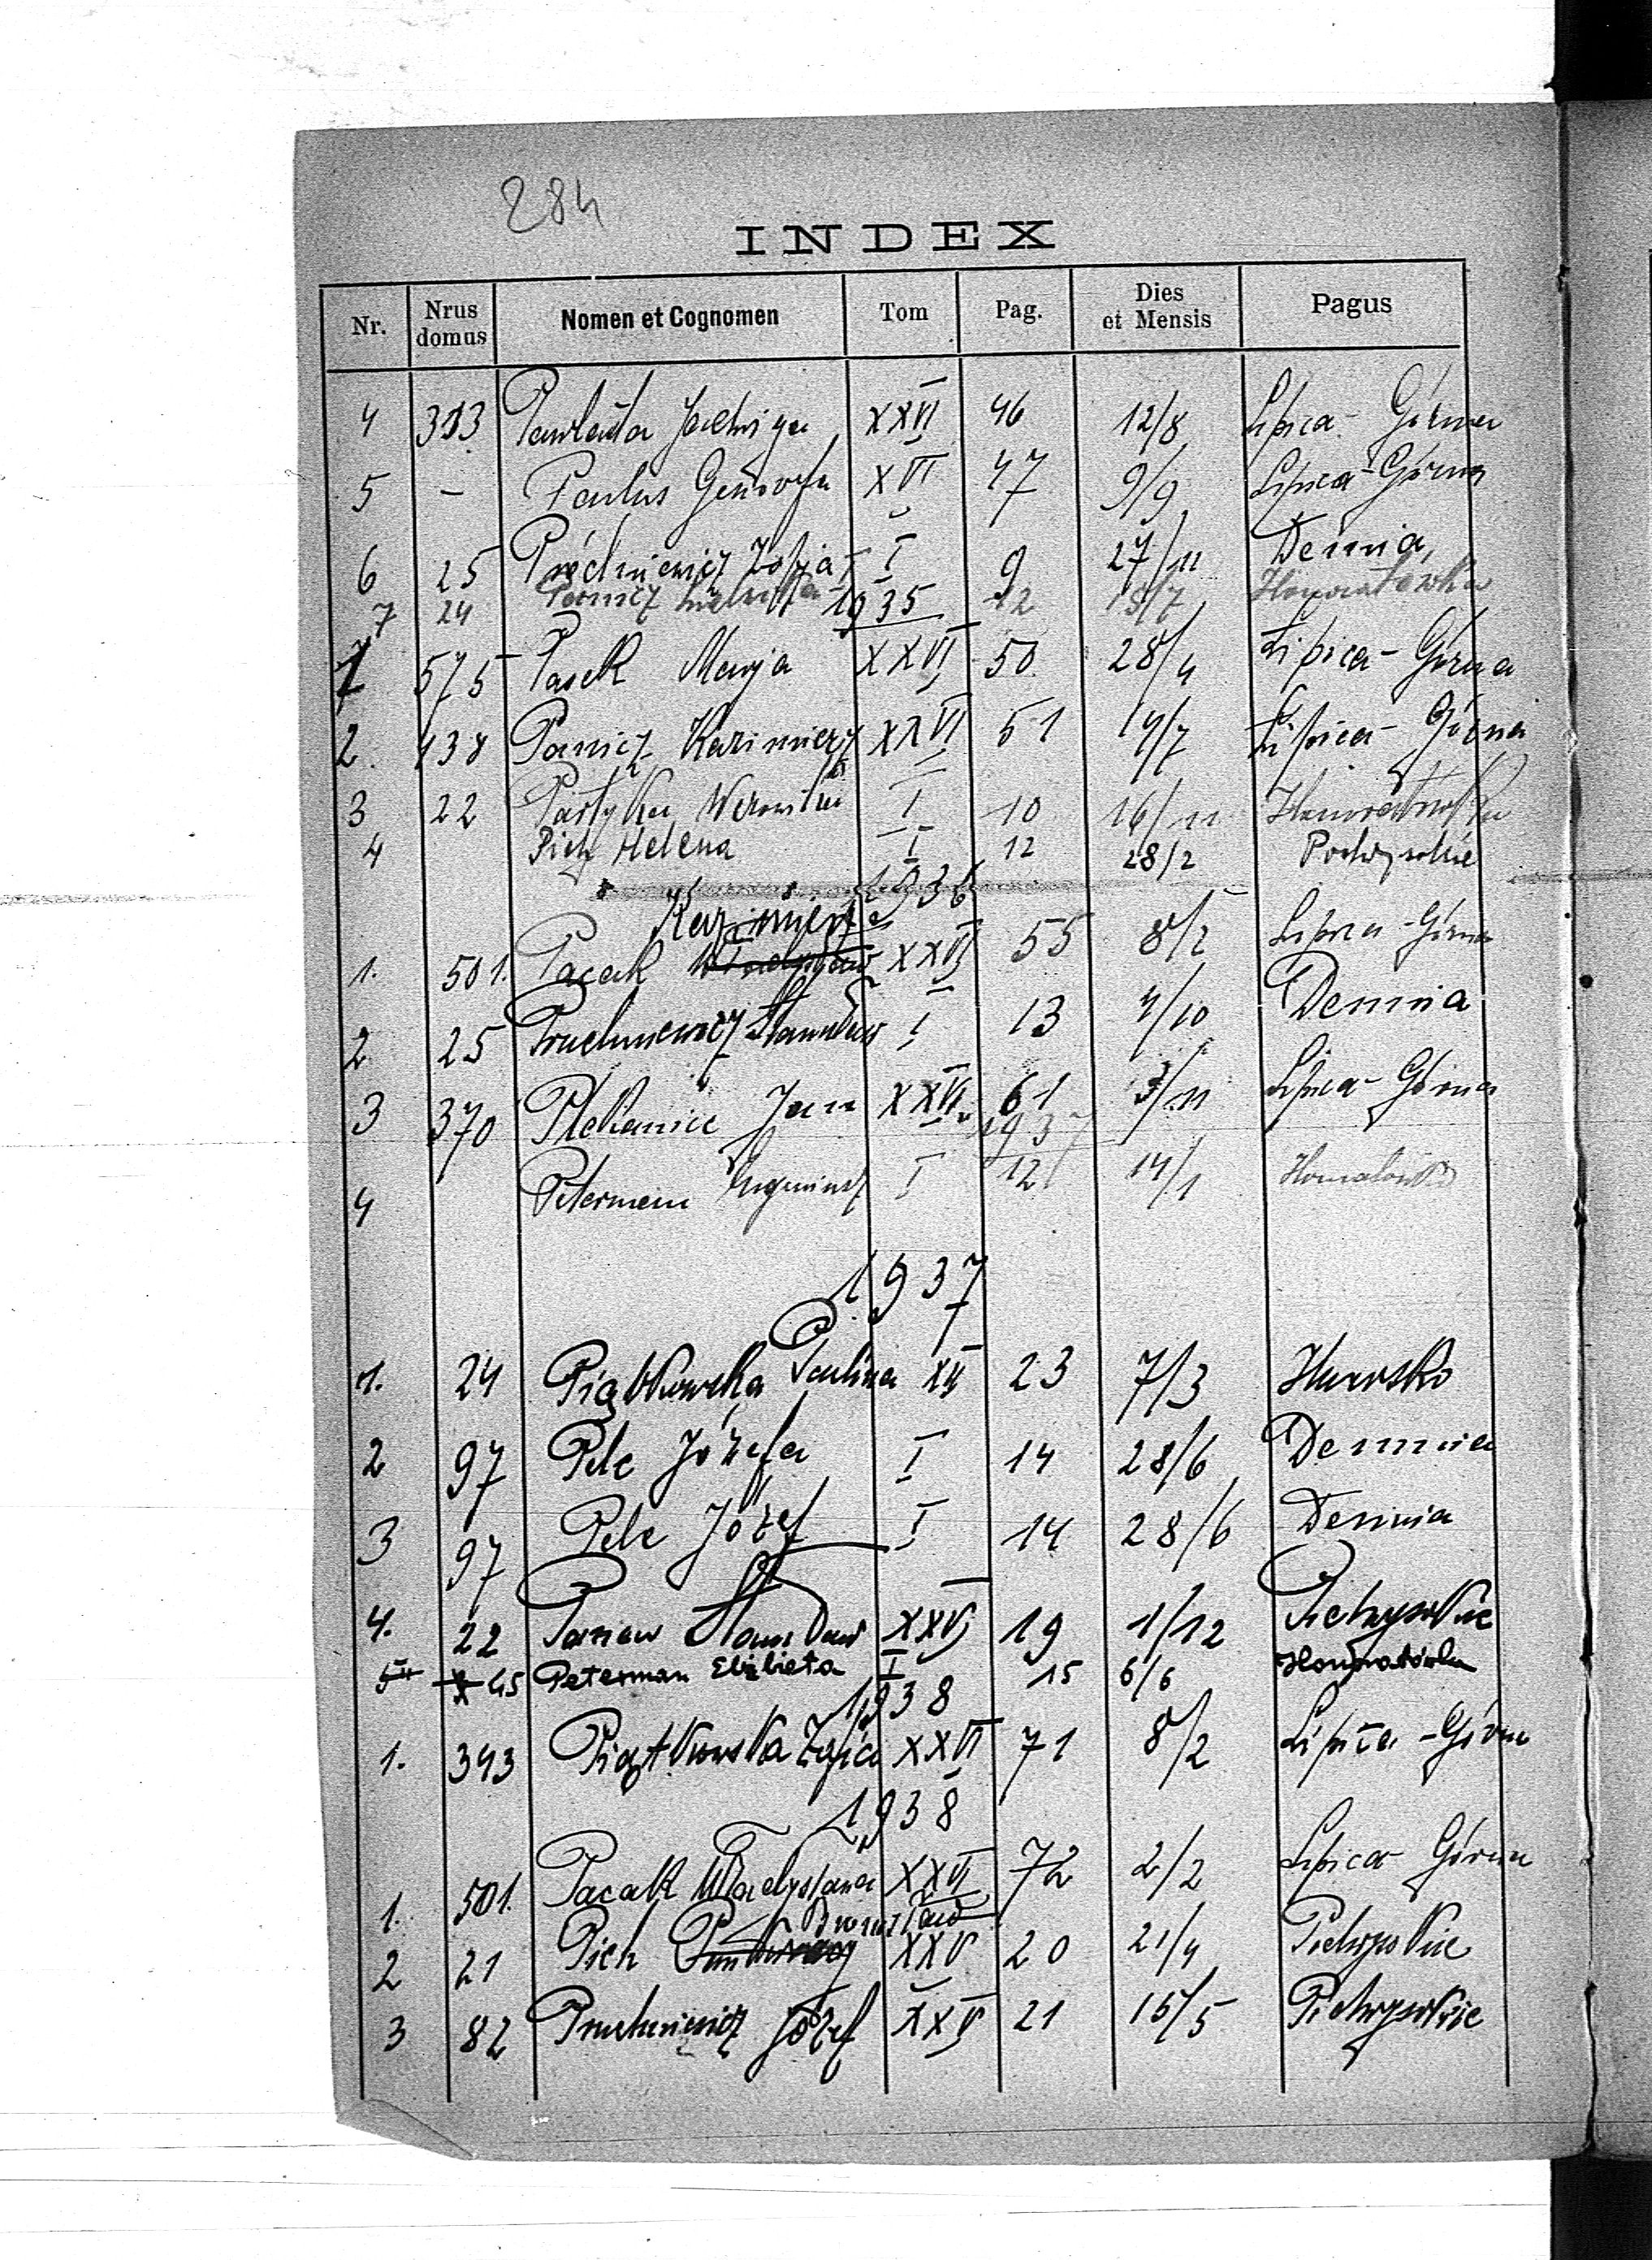 284
INDEX
Nr. Nrus domus Nomen et Cognomen Tom Pag. Dies et Mensis Pagus
4 313 Pawlata Jadwiga XXVI 46 12/8 Lipica-Górna
5 - Paulus Genowefa XVI 47 9/9 Lipica-Górna
6 25 Próchniewicz Zofja I 9 27/11 Demnia
7 24 12 15/7 Honoratówka
1935
1 575 Pasek Marja XXVI 50 28/4 Lipica-Górna
2. 438 Panicz Kazimierz XXVI 51 4/7 Lipica-Górna
3 22 Partyka Weronika I 10 16/11 Honoratówka
4 Pich Helena I 12 28/2 Podwysokie
1936
Kazimierz
1. 501. Pacak Władysław XXVI 55 8/2 Lipica-Górna
2 25 Pruchniewicz Stanisław I 13 4/10 Demnia
3 370 Plekanice Jan XXVI 61 3/11 Lipica-Górna
1937
4 Peterman I 12 14/1
1937
1. 24 Piątkowska Paulina XII 23 7/3 Hucisko
2 97 Pelc Józefa I 14 28/6 Demnia
3 97 Pelc Józef I 14 28/6 Demnia
4. 22 Stanisław XXV 19 1/12
5 45 Peterman Elżbieta I 15 6/6 Honoratówka
1938
1. 343 Piątkowska Zofia XXVI 71 8/2 Lipica-Górna
1938
1. 501. Pacak Władysława XXVI 72 2/2 Lipica Górna
Bronisław
2 21 Pich XXV 20 21/4
3 82 Pruchniewicz Józef XXV 21 15/5